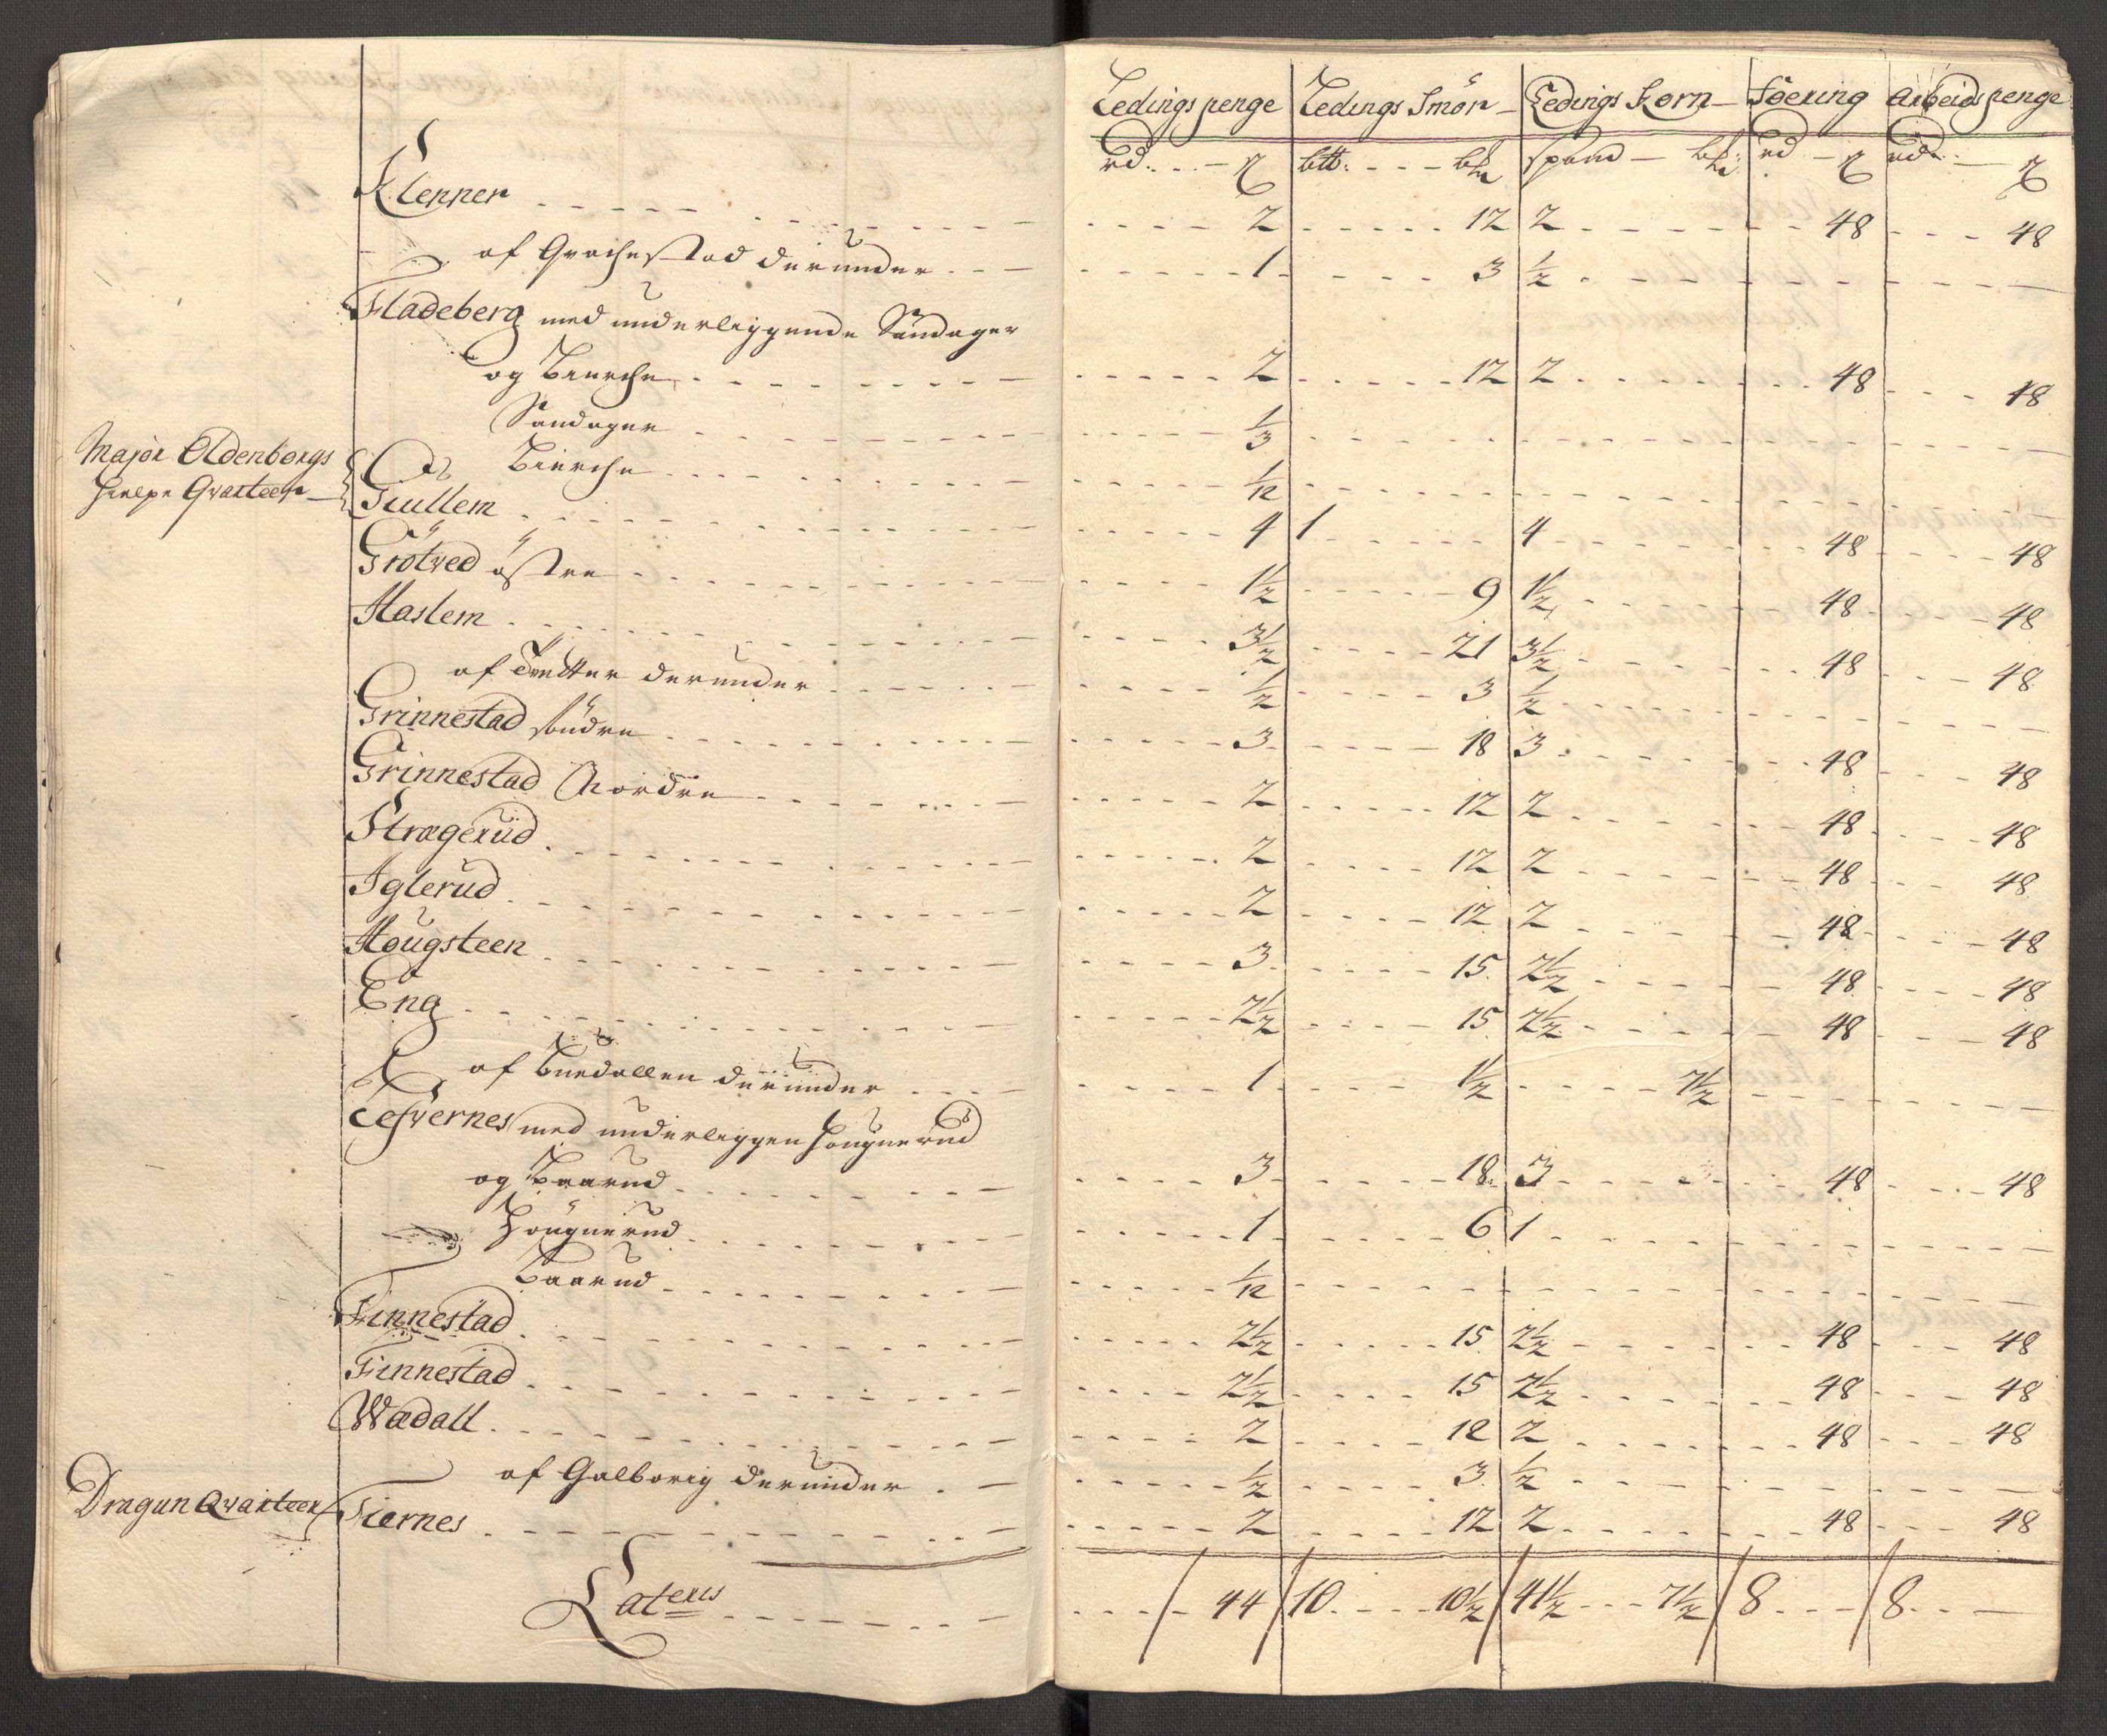 Ledings penge Ledings Smör Ledings Korn Föering Arbeids penge
rd: ß btt: bh spand bh: rd ß rd: ß
Klenner 2 12 2 48 48
af Grachestad derunder 1 3 ½
Fladeberg med underliggende Sandager
og Bierche 2 12 2 48 48
Sandager ⅓
Bierche 1/12
Major Oldenborgs
hielpe Qvarteer
Gullem 4 1 4 48 48
Grötved östre 1½ 9 1½ 48 48
Haslem 3½ 21 3½ 48 48
af Tvetter derunder ½ 3 ½
Grinnestad söndre 3 18 3 48 48
Grinnestad Nordre 2 12 2 48 48
Strægerud 2 12 2 48 48
Iglerud 2 12 2 48 48
Hougsteen 3 15 2½ 48 48
Eng 2½ 15 2½ 48 48
af Buedallen derunder 1 1½ 7½
Lesvernes med underliggen Hougnerud
og Baarud 3 18 3 48 48
Hougnerud 1 6 1
Baarud 1/12
Finnestad 2½ 15 2½ 48 48
Finnestad 2½ 15 2½ 48 48
Wædall 2 12 2 48 48
af Galborig derunder ½ 3 ½
Dragun Qvarteer Tiernes 2 12 2 48 48
Lateris 44 10 10½ 41½ 7½ 8 8